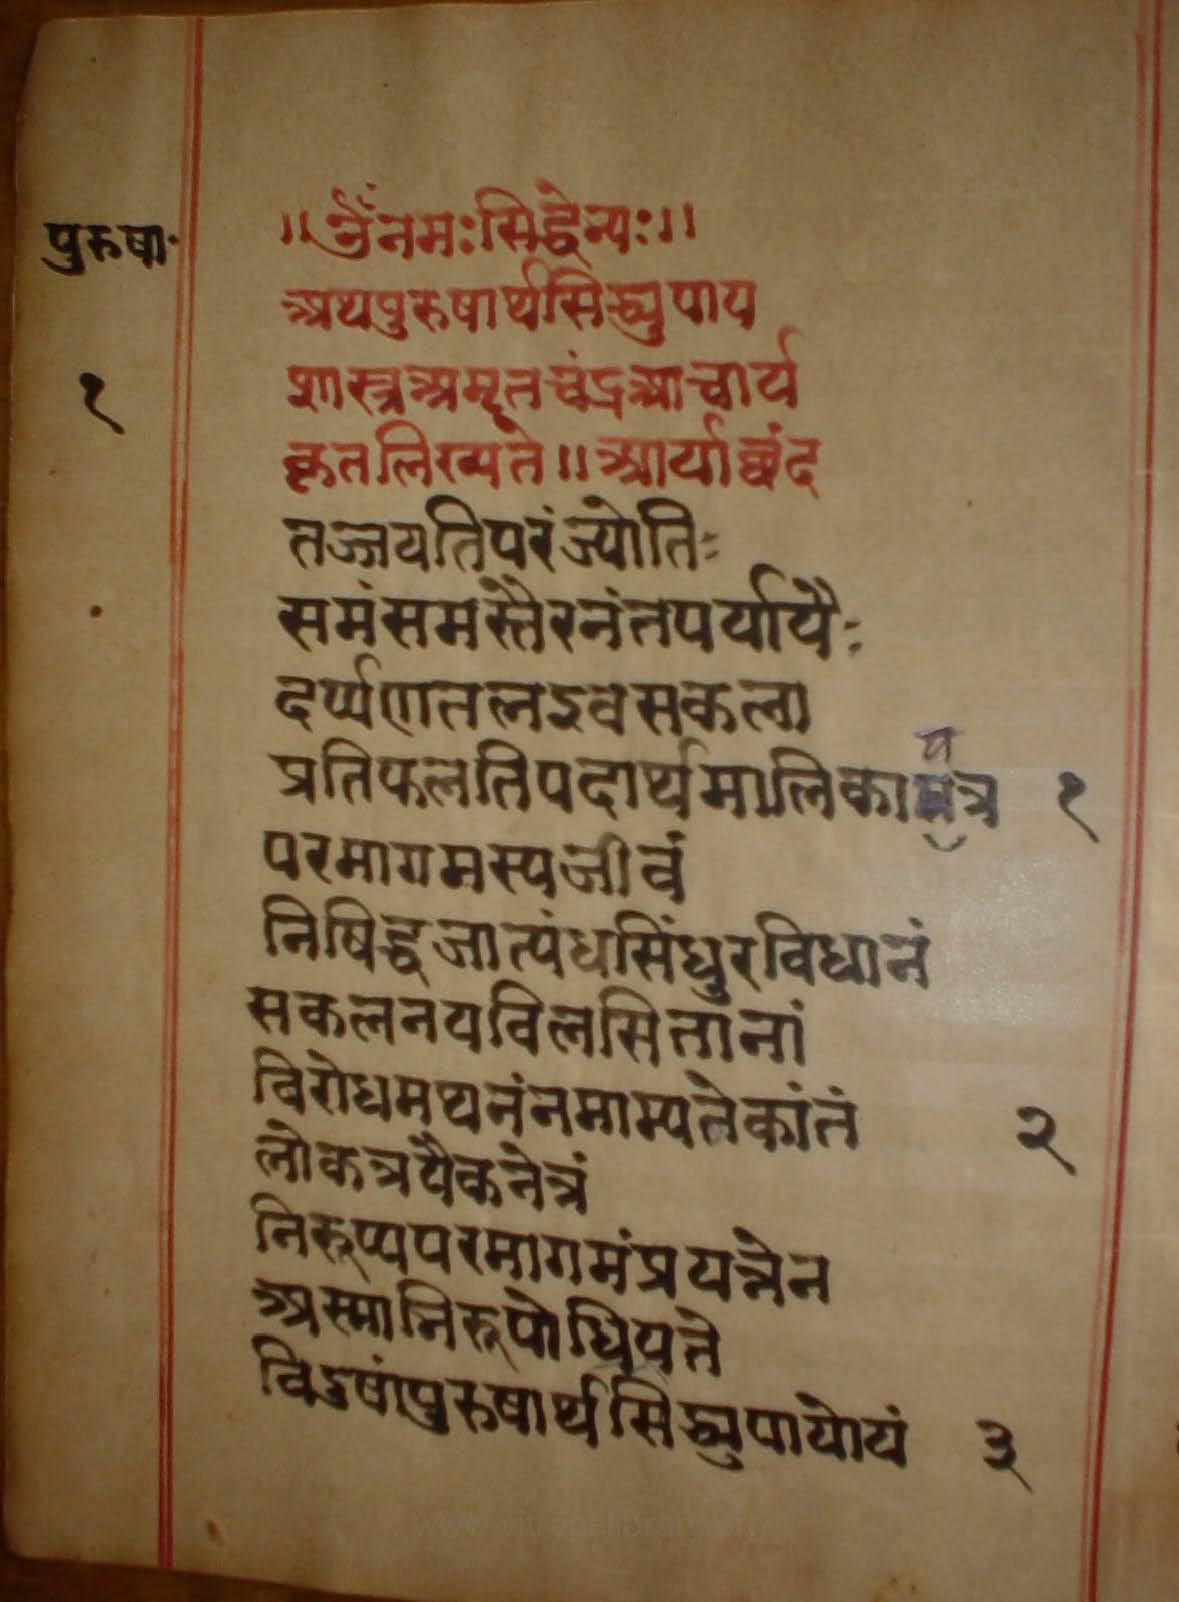 पुरुषा॰
१
॥ॐनमःसिद्धेभ्यः॥
अथपुरुषार्थसिद्ध्युपाय
शास्त्रअमृतचंद्रआचार्य
कृतलिख्यते॥आर्याछंद
तज्जयतिपरंज्योतिः
समंसमस्तैरनंतपर्यायैः
दर्प्पणतलइवसकला
प्रतिफलतिपदार्थमालिकायत्र १
परमागमस्यजीवं
निषिद्धजात्यंधसिंधुरविधानं
सकलनयविलसितानां
विरोधमथनंनमाम्यनेकांतं २
लोकत्रयैकनेत्रं
निरूप्यपरमागमंप्रयत्नेन
अस्मानिरूपोध्रियते
विदुषांपुरुषार्थसिद्ध्युपायोयं ३